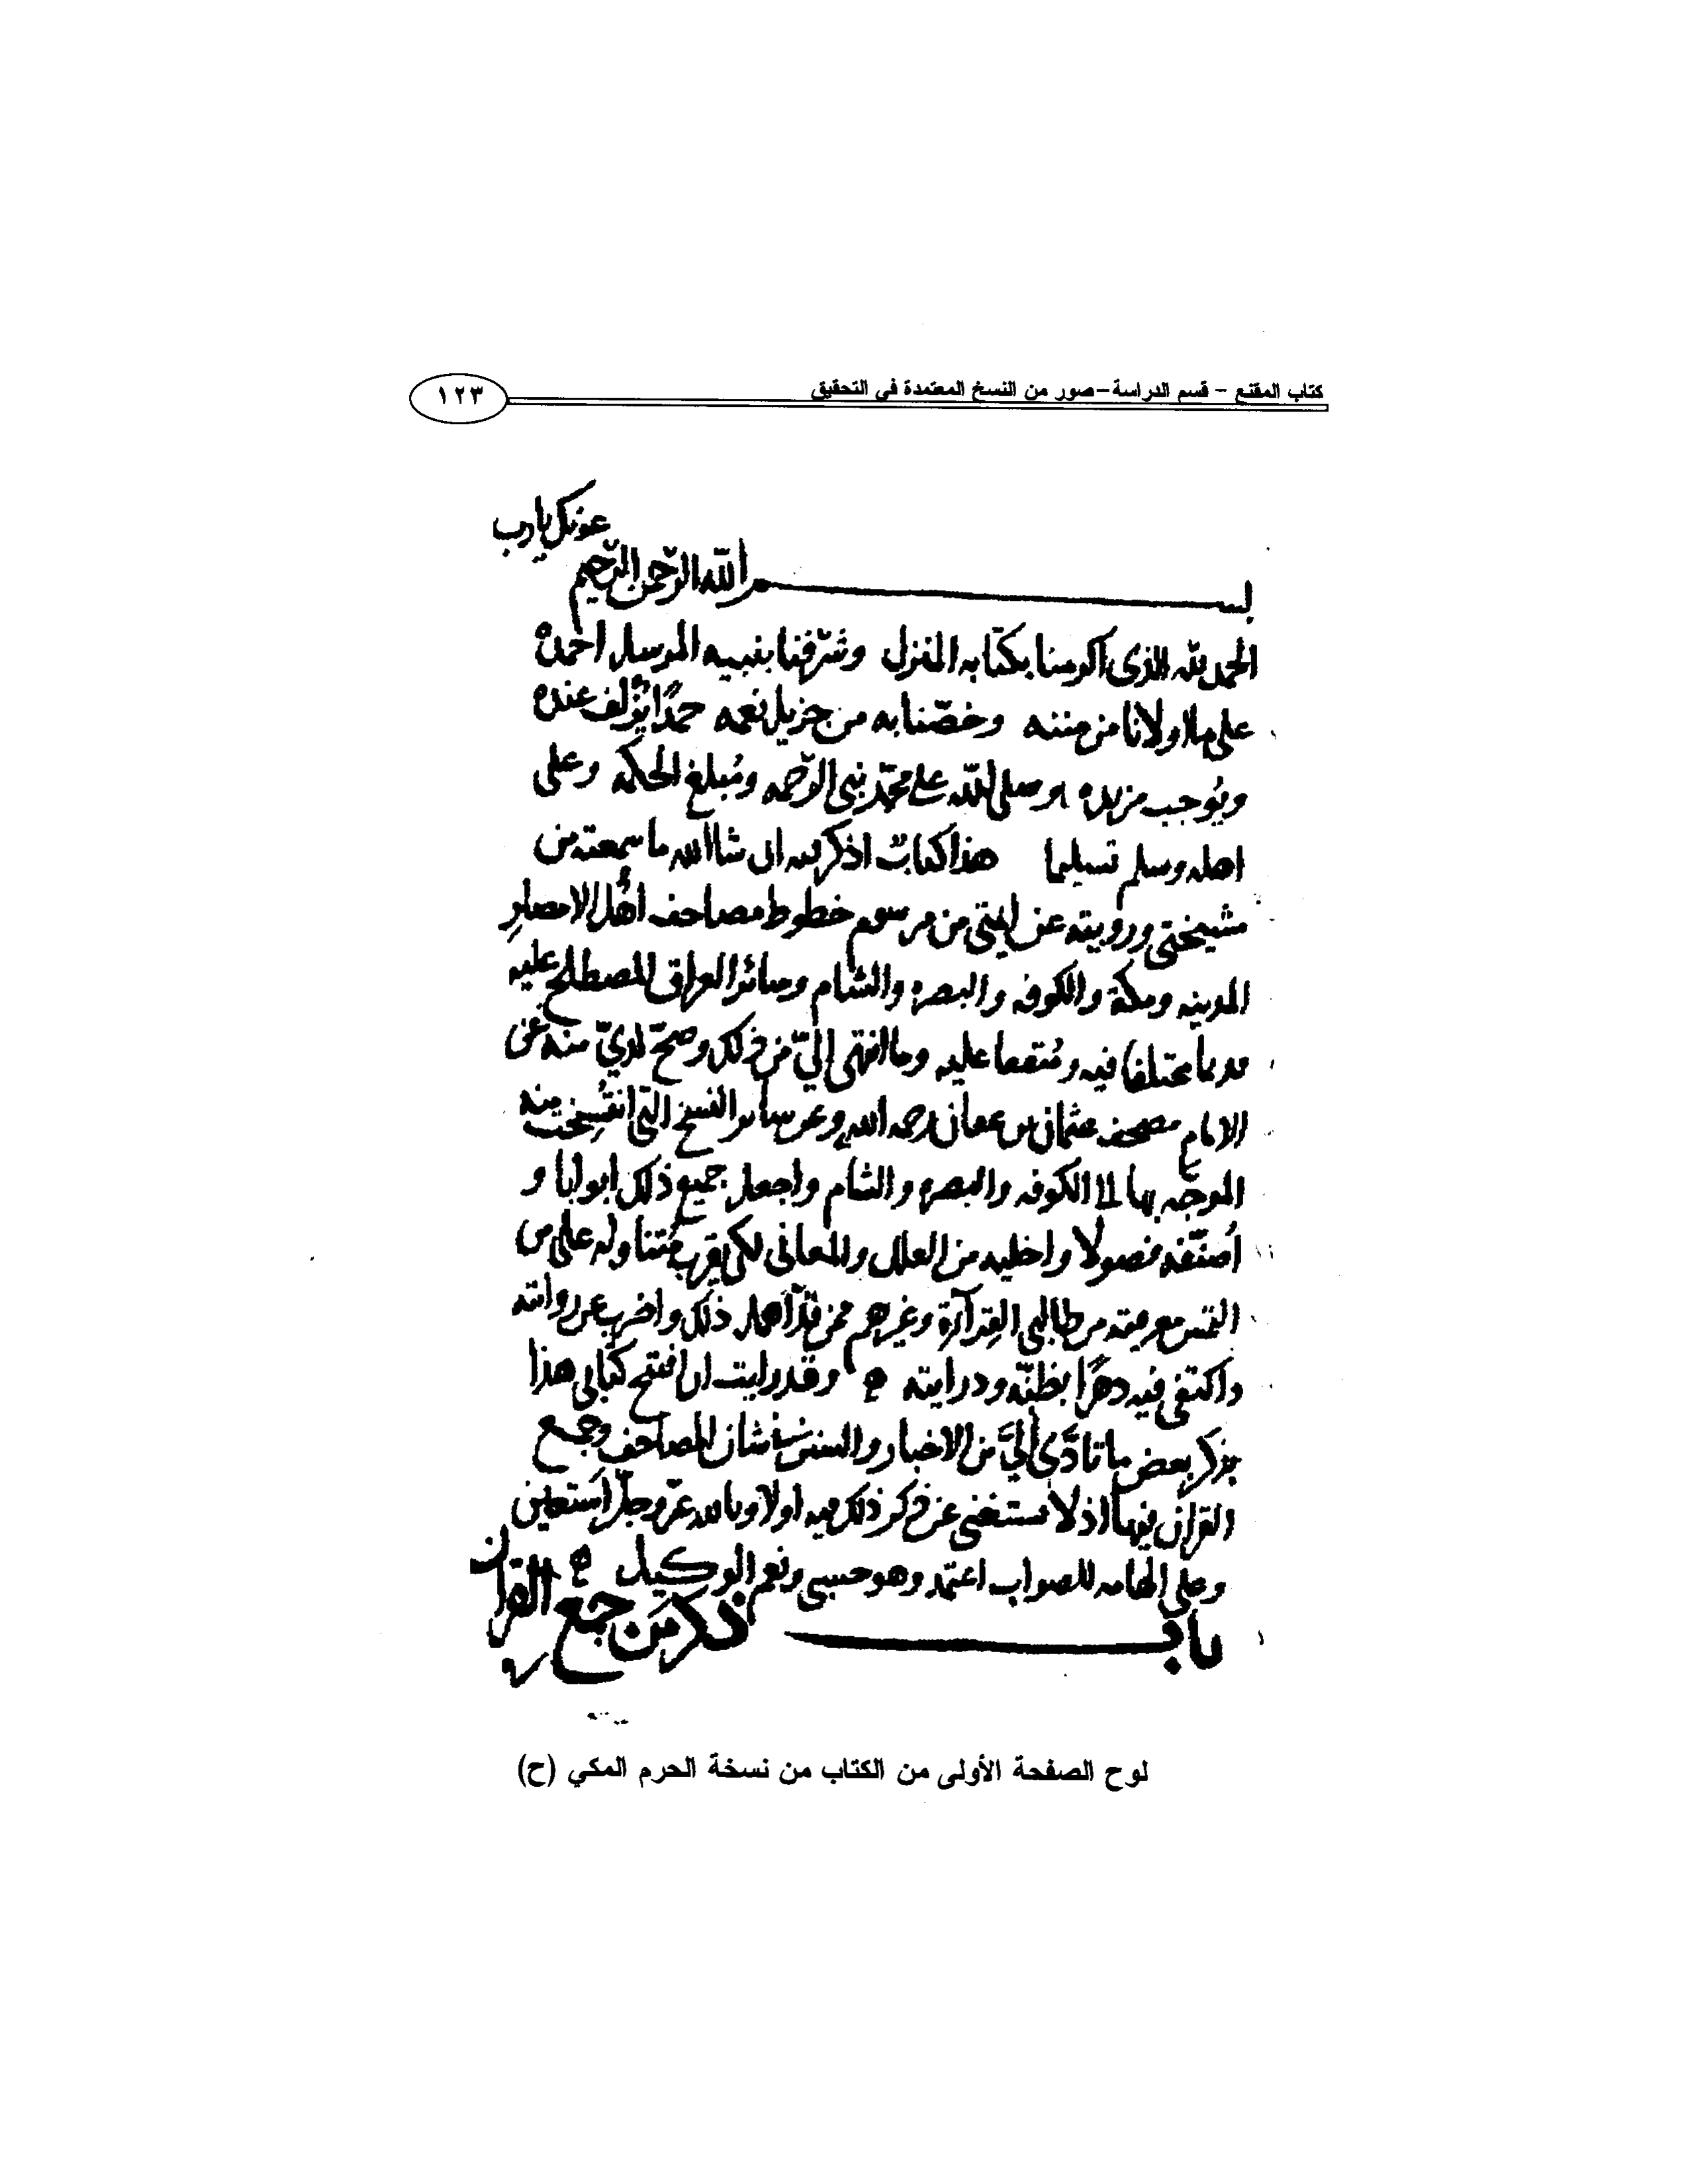 كتاب المقنع – قسم الدراسة – صور من النسخ المعتمدة في التحقيق
١٢٣
عونك يا رب
بسم الله الرّحمن الرّحيم
الحمد لله الذى اكرمنا بكتابه المنزل وشرّفنا بنبيه المرسل احمده
على ما اولانا من مننه وخصّنا به من جزيل نعمه حمدًا يُزلف عنده
ويُوجب مزيده وصلى اللّه على محمّد نبى الرّحمه ومُبلغ الحكمه وعلى
اهله وسلم تسليما هذا كتابٌ اذكر فيه ان شا الله ما سمعته من
مشيختى ورويته عن ايمتى من مرسوم خطوط مصاحف أهل الامصارِ
المدينه ومكة والكوفه والبصره والشام وسائر العراق المصطلح عليه
قديما مختلفا فيه ومُتفقا عليه وما انتهى اليّ من ذلك وصحّ لديّ منه عن
الامام مصحف عثمان بن عفان رحمه الله وعن سائر النسخ التى انتُسِخت منه
الموجّه بها الى الكوفه والبصره والشام واجعل جميع ذلك ابوابا و
اُصنّفه فصولا واخليه من العلل والمعانى لكى يقرب مُتناوله على من
التمس معرفته من طالبى القِرآءة وغيرهم ممن قدْ أهمل ذلك واضرب عن روايته
واكتفى فيه دهرًا بظنّه ودرايته ه وقد رايت ان افتتح كتابى هذا
بذكر بعض ما تادّى اليَّ من الاخبار والسنن فى شان المصاحف وجمع
القران فيها اذ لا يستغنى عن ذكر ذلك فيه اولا وبالله عزّ وجلّ اَستعين
وعلى الهامه للصواب اعتمد وهو حسبى ونعم الوكيل ه
باب ذكر من جمع القران
لوح الصفحة الأولى من الكتاب من نسخة الحرم المكي (ح)